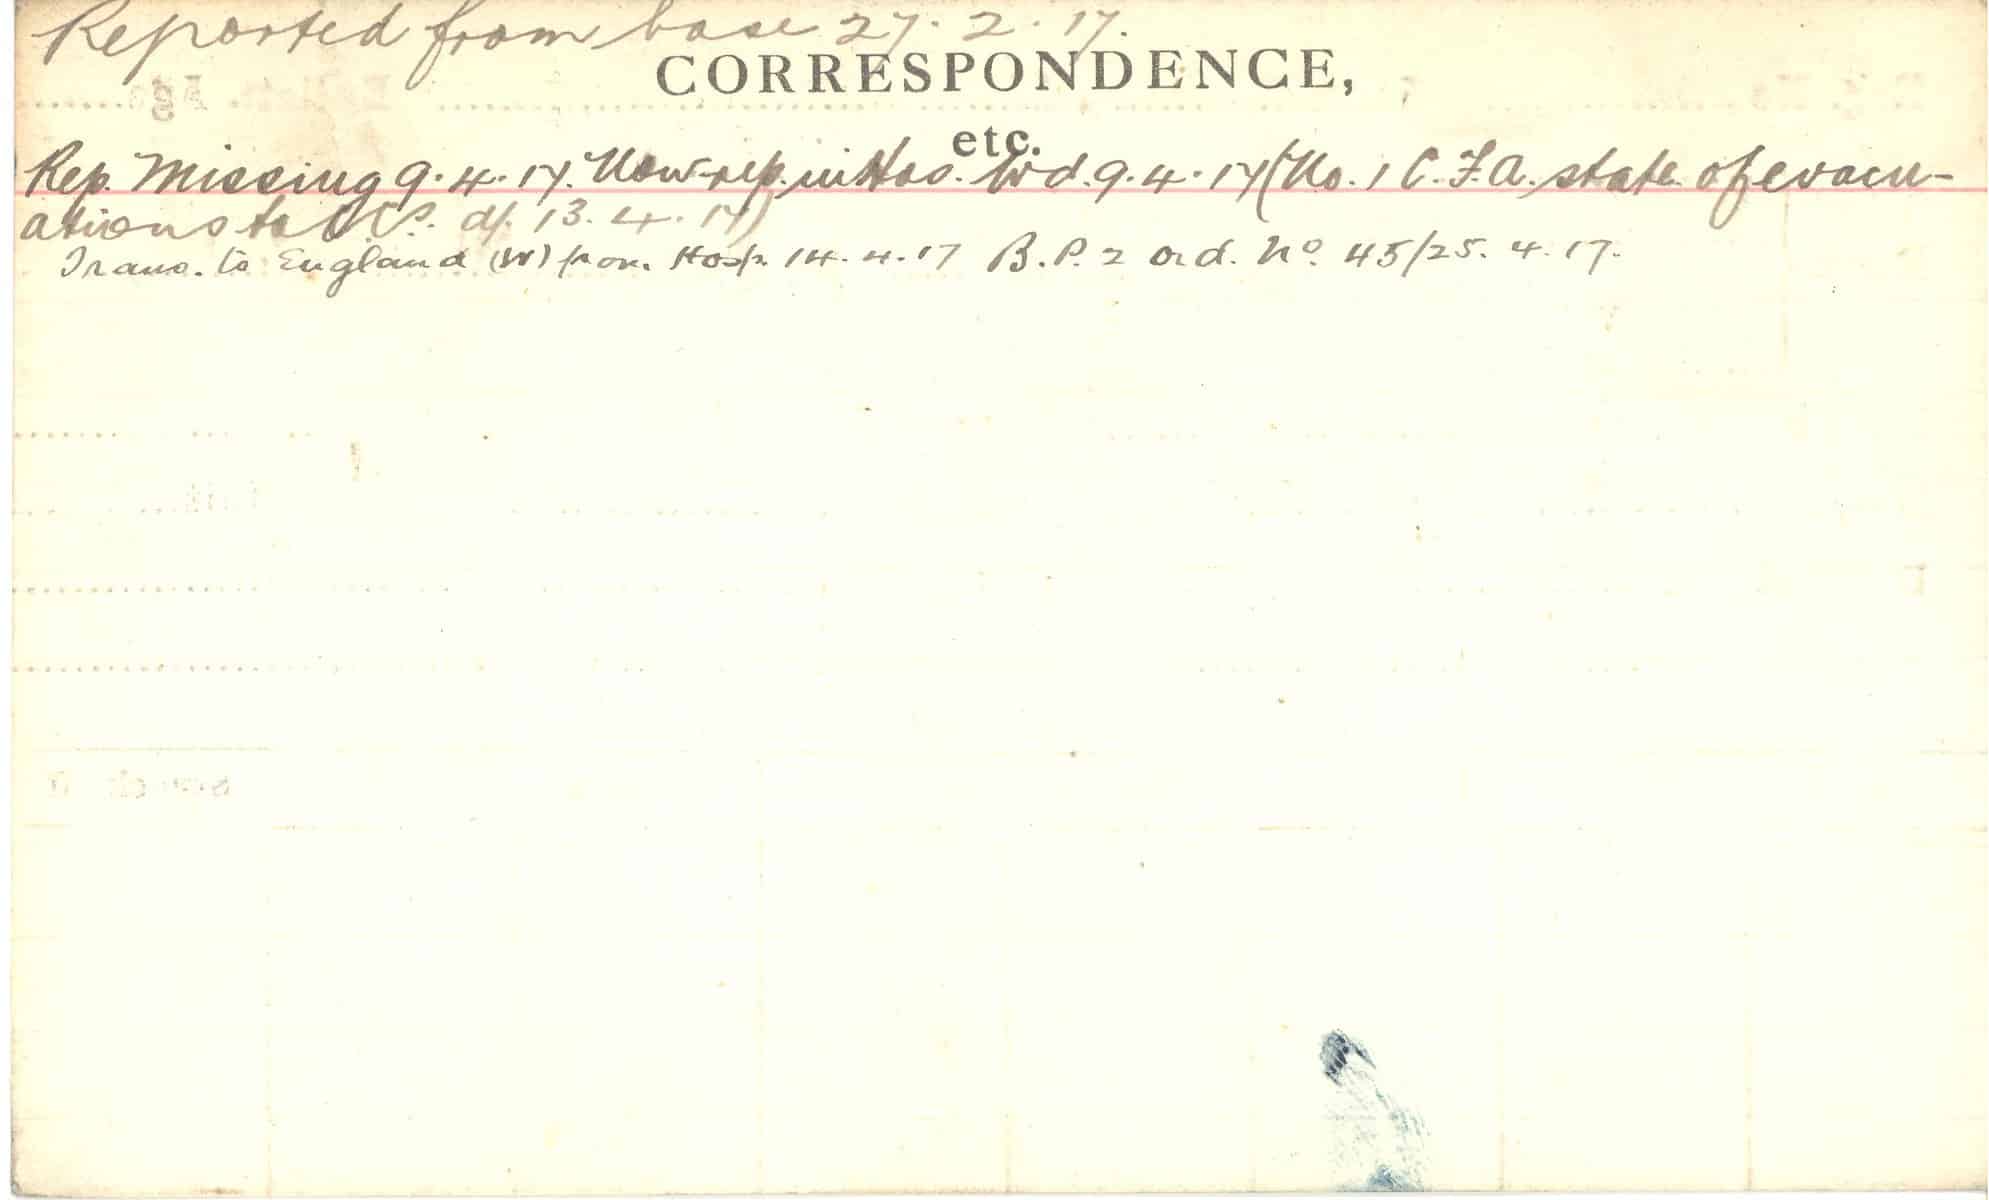 Reported from base 27.2.17.
CORRESPONDENCE,
etc.
Rep. Missing 9.4.17. Now rep. in Hos. Wd. 9.4.17 (No. 1 C.F.A. state of evacu-
ations to CCS. d/. 13.4.17)
Trans. to England (W) from Hosp. 14.4.17 B.P. 2 ord. No. 45/25.4.17.